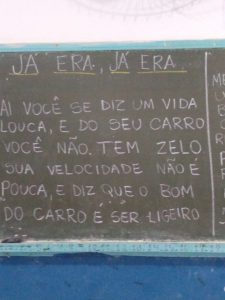 JÁ ERA, JÁ ERA
AI VOCÊ SE DIZ UM VIDA
LOUCA, E DO SEU CARRO
VOCÊ NÃO TEM ZELO
SUA VELOCIDADE NÃO É
POUCA, E DIZ QUE O BOM
DO CARRO É SER LIGEIRO